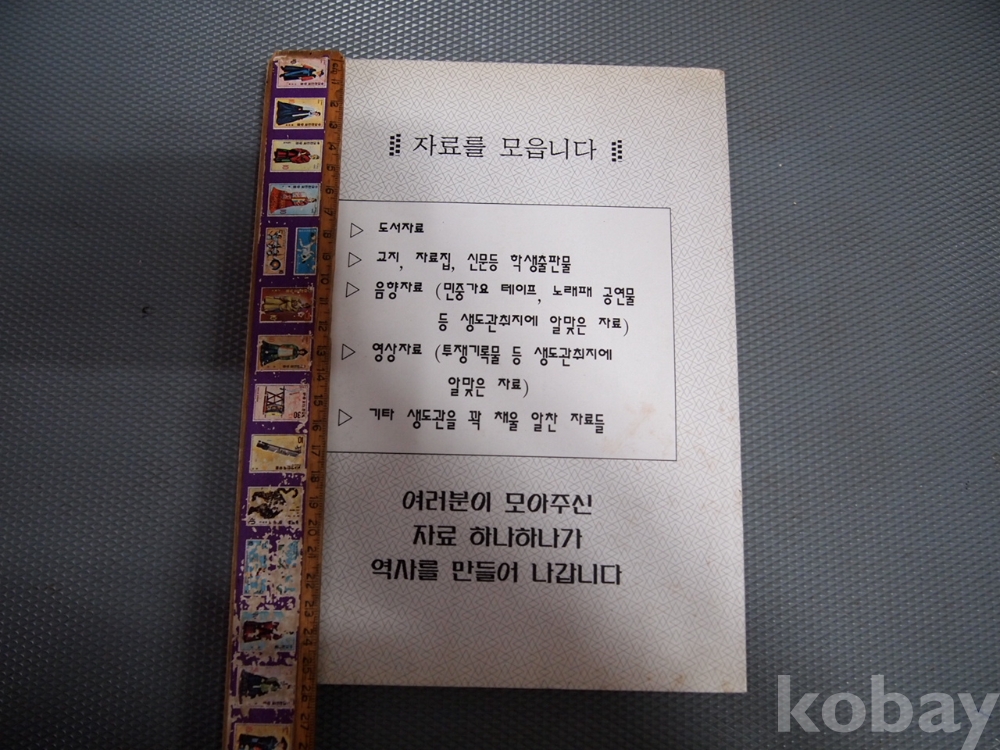 자료를 모읍니다
▷ 도서자료
▷ 교지, 자료집, 신문등 학생출판물
▷ 음향자료 (민중가요 테이프, 노래패 공연물
등 생도관취지에 알맞은 자료)
▷ 영상자료 (투쟁기록물 등 생도관취지에
알맞은 자료)
▷ 기타 생도관을 꽉 채울 알찬 자료들
여러분이 모아주신
자료 하나하나가
역사를 만들어 나갑니다
kobay